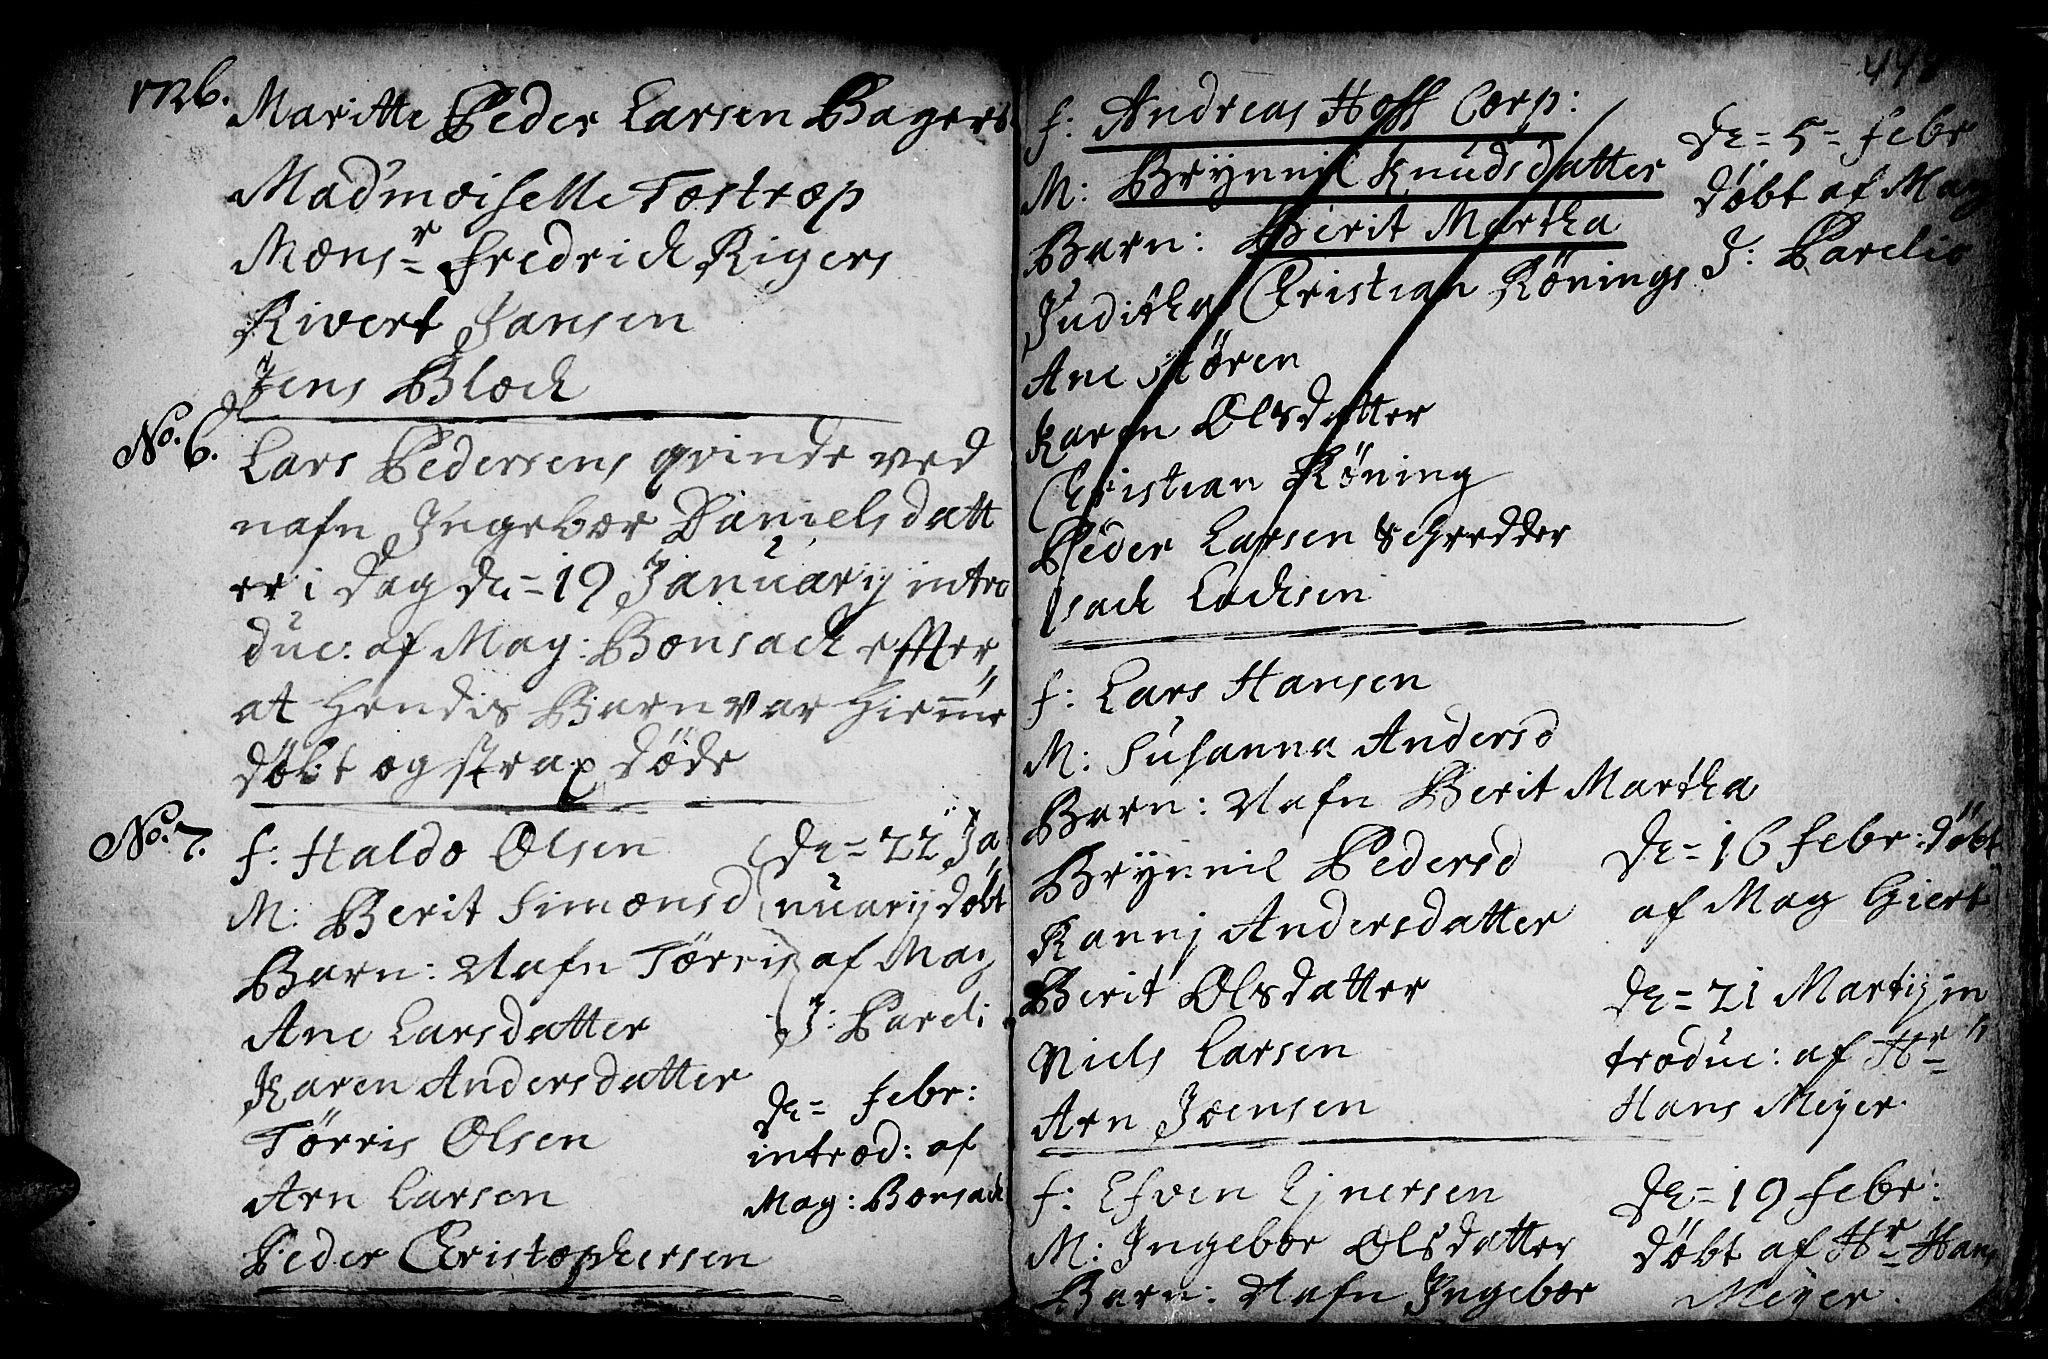 1726.
Maritte Peder Larsen Bagers
Mad'moiselle Tostrop
Monsr Fredrich Rigers
Rivert Jansen
Jens Bloch
No. 6.
Lars Pedersens qvinde ved
nafn Ingebor Danielsdatt
er i dag de= 19 Januarij intro
duc: af Mag: Bonsach effter,
at hendis Barn var hiemme
døbt og strax døde
No. 7.
f: Haldo Olsen
M: Berit Simonsd
Barn: Nafn Tørris
Ane Larsdatter
Karen Andersdatter
Tørris Olsen
Arn Larsen
Peder Christophersen
de= 22 Ja
nuarij døbt
af Mag
J: Pareli
de= febr:
introd: af
Mag: Bonsach
f: Andreas Hoff Corp:
M: Brynnil Knudsdatter
Barn: Berit Martha
Juditha Christian Könings
Ane Støren
Karen Olsdatter
Christian Köning
Peder Larsen Schredder
Isach Lochsen
de= 5= febr
døbt af Mag
J: Parelio
f: Lars Hansen
M: Susanna Andersd
Barn: Nafn Berit Martha
Brynnil Pedersd
Kannj Andersdatter
Berit Olsdatter
Niels Larsen
Arn Joensen
de= 16 febr: døbt
af Mag Giert
de= 21 Martij in
troduc: af Hr
Hans Meyer.
f: Efven Ejnersen
M: Ingebor Olsdatter
Barn: Nafn Ingebor
de= 19 febr:
døbt af Hr Hans
Meyer.